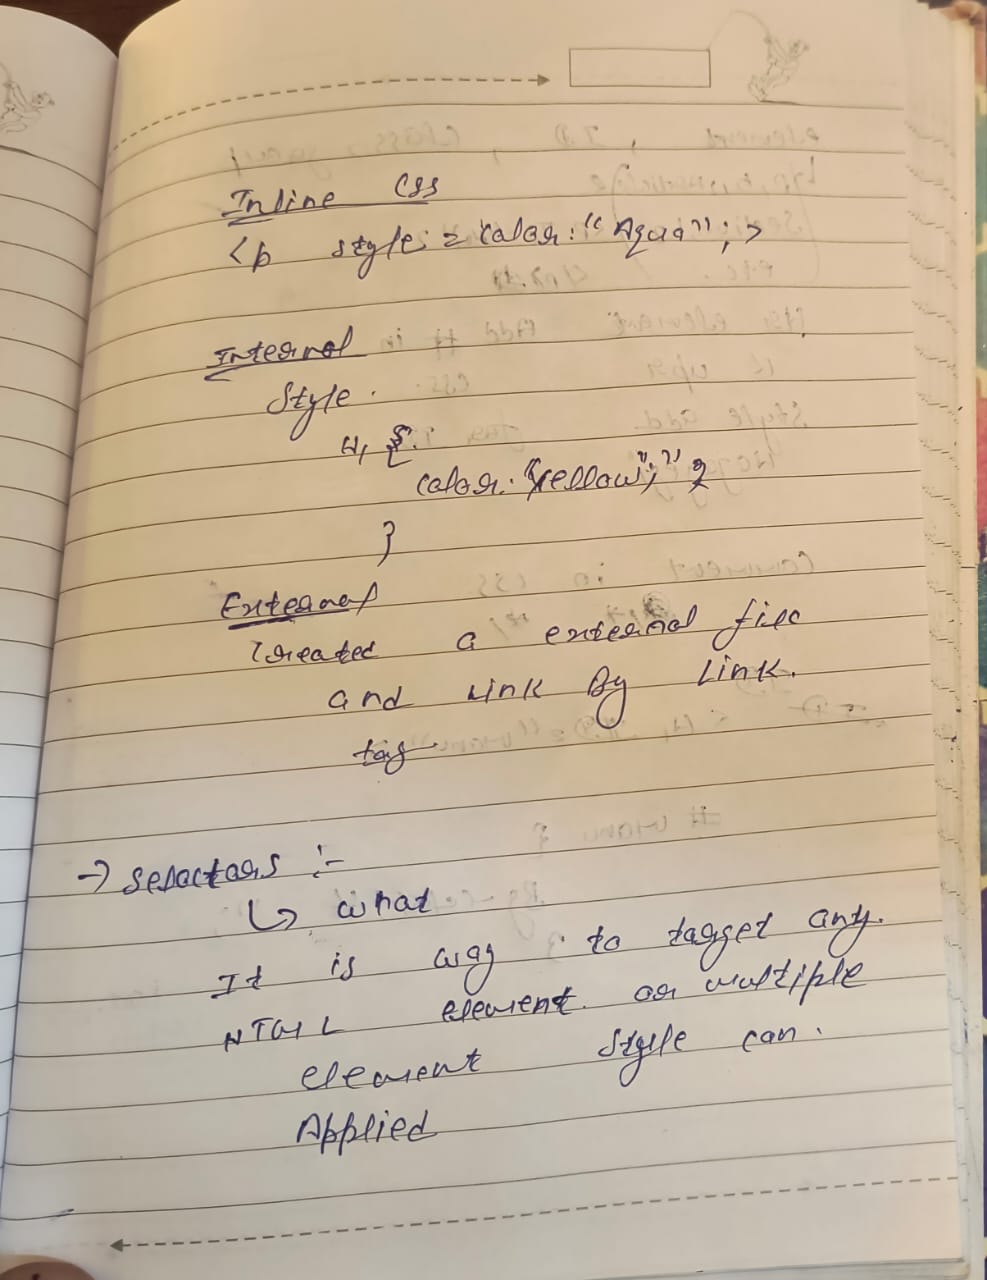 Inline CSS
<p style = color: "Aqua"; >
Internal
Style.
H1 {
color: "yellow";
}
External
Created a external file
and Link By Link.
tag
→ Selectors :-
↳ what
It is way to target any.
HTML element or multiple
element Style can.
Applied